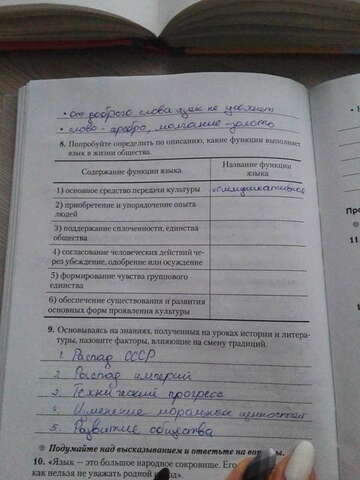 • от доброго слова язык не усохнет
• слово - серебро, молчание - золото
8. Попробуйте определить по описанию, какие функции выполняет
язык в жизни общества.
Содержание функции языка
Название функции
языка
1) основное средство передачи культуры
коммуникативная
2) приобретение и упорядочение опыта
людей
3) поддержание сплоченности, единства
общества
4) согласование человеческих действий че-
рез убеждение, одобрение или осуждение
5) формирование чувства группового
единства
6) обеспечение существования и развития
основных форм проявления культуры
9. Основываясь на знаниях, полученных на уроках истории и литера-
туры, назовите факторы, влияющие на смену традиций.
1. Распад СССР
2. Распад империй
3. Технический прогресс
4. Изменение моральных ценностей
5. Развитие общества
Подумайте над высказыванием и ответьте на
10. «Язык — это большое народное сокровище. Его
как нельзя не уважать родной
8.
Пр
11